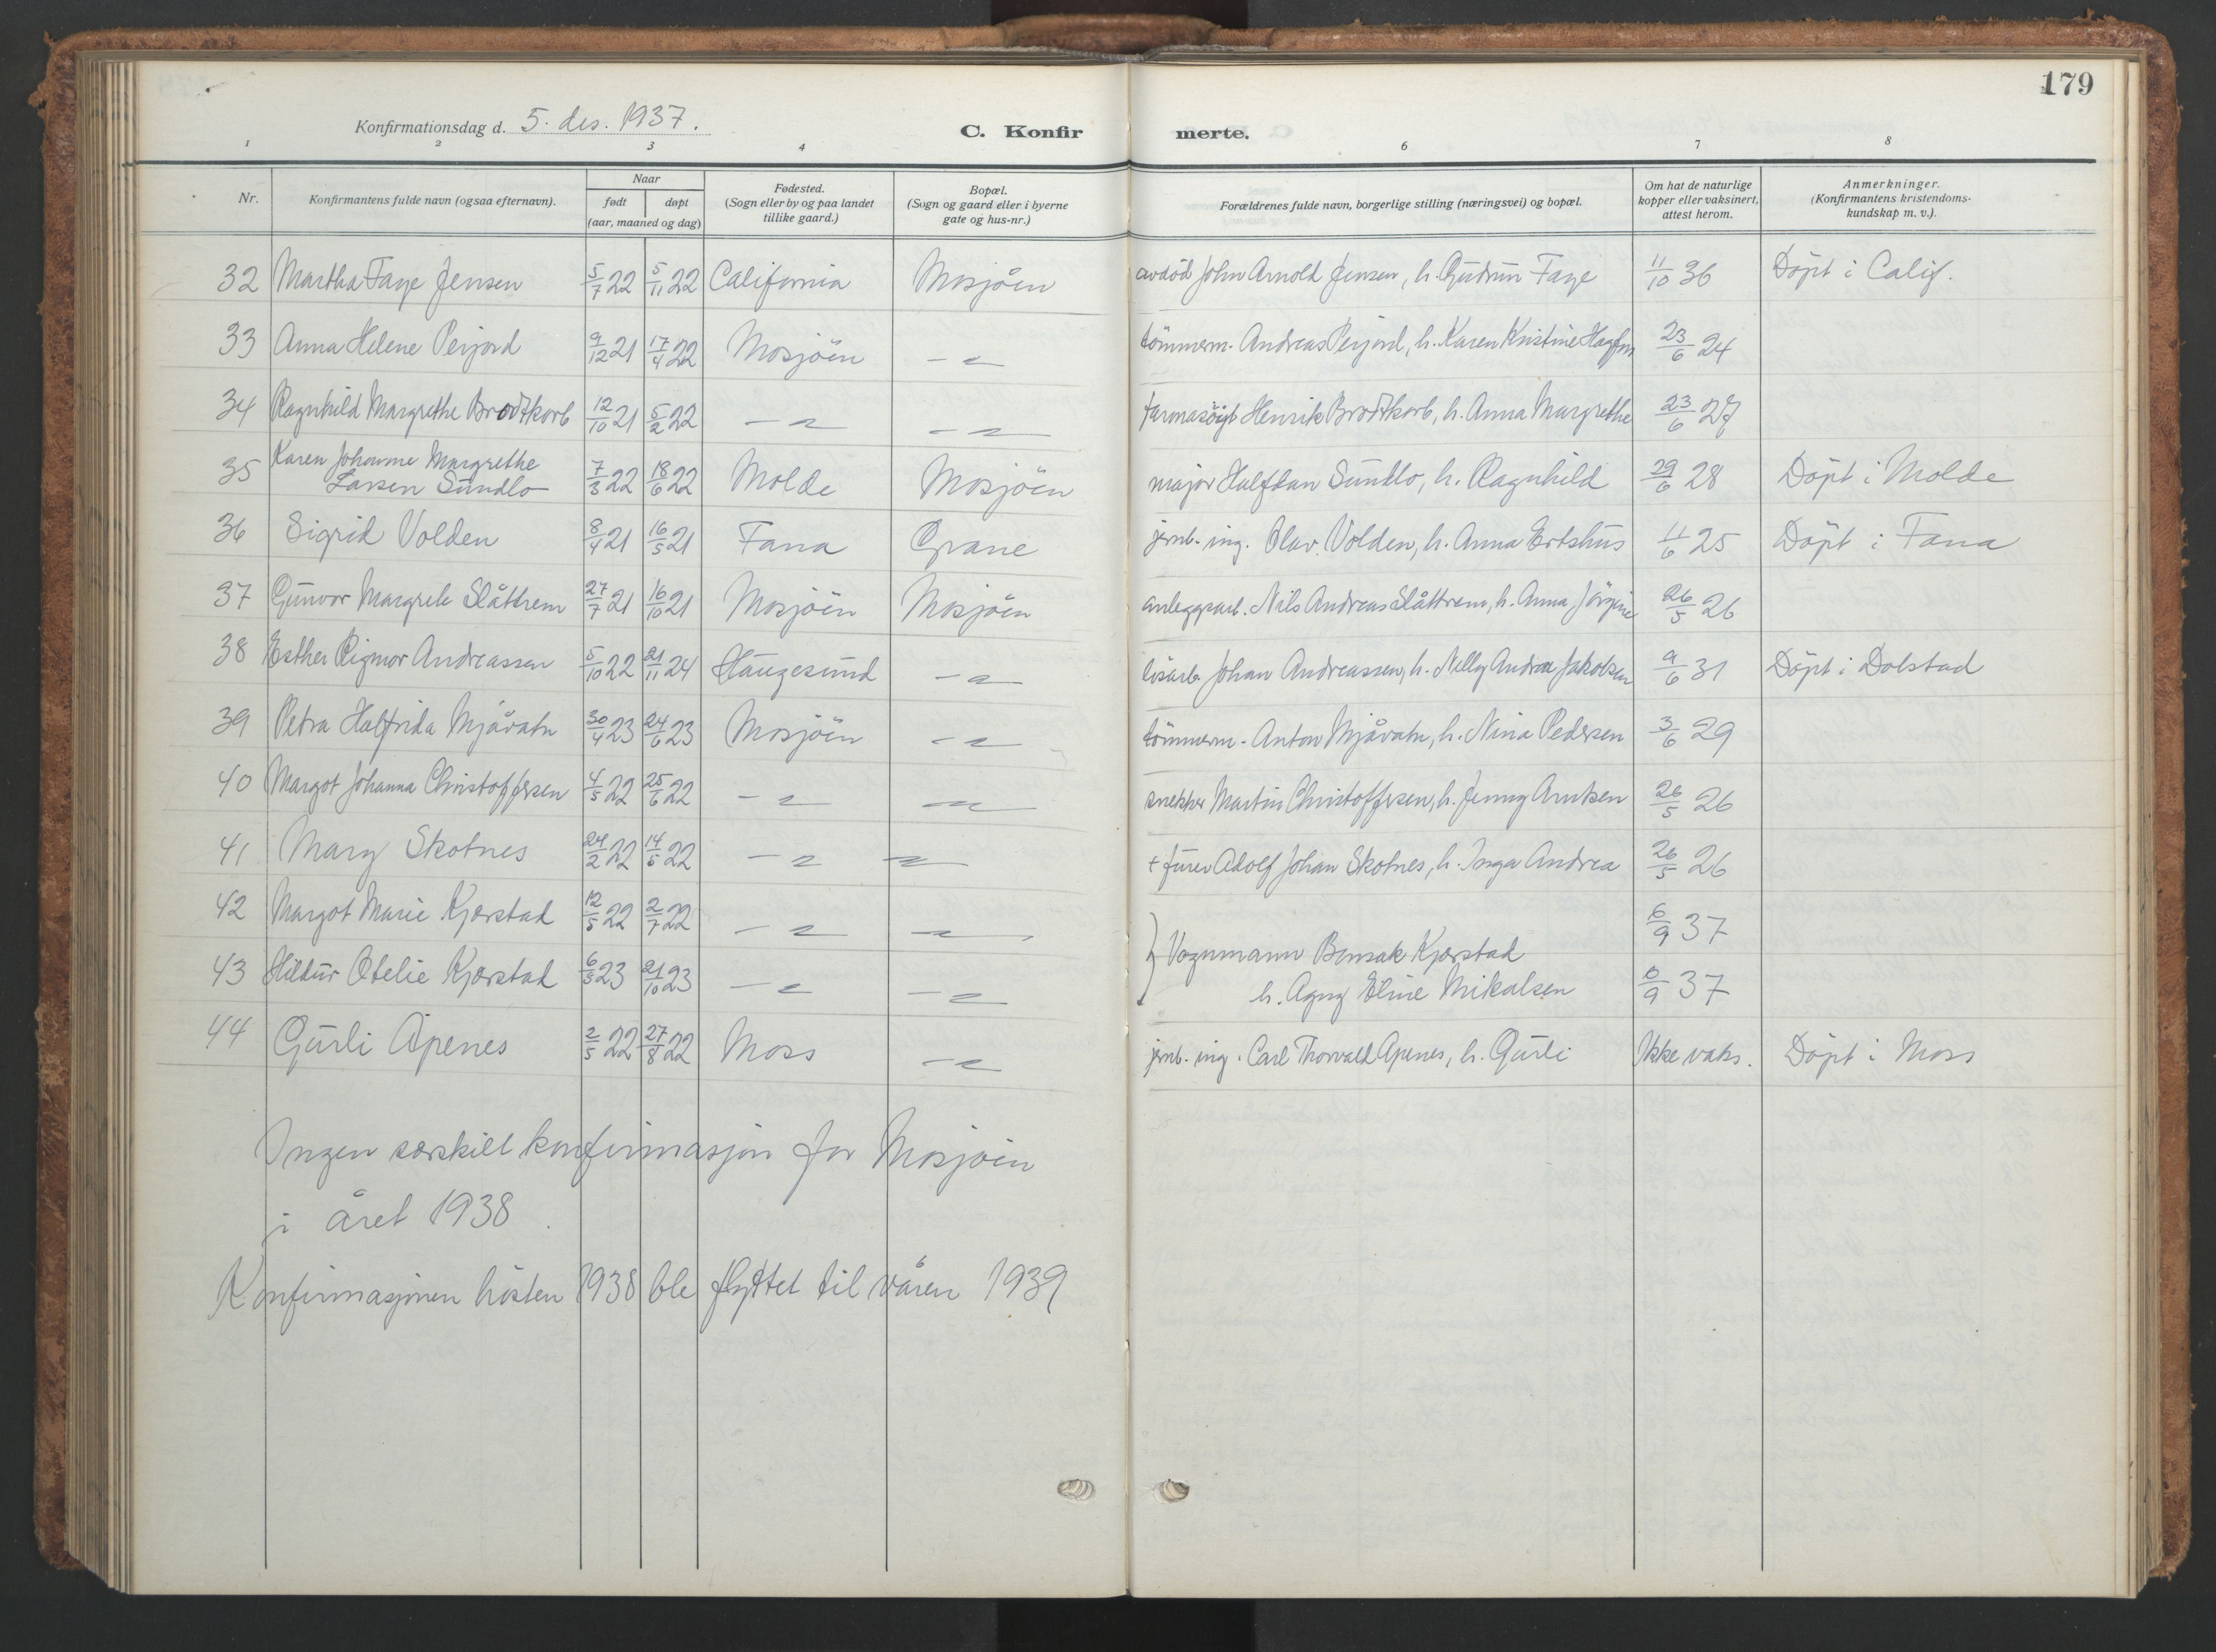 179
Konfirmationsdag d. 5. des. 1937.
C. Konfirmerte.
1 2 3 4 6 7 8
Nr. Konfirmantens fulde navn (ogsaa efternavn). Naar født døpt (aar, maaned og dag) Fødested. (Sogn eller by og paa landet tillike gaard.) Bopæl. (Sogn og gaard eller i byerne gate og hus-nr.) Forældrenes fulde navn, borgerlige stilling (næringsvei) og bopæl. Om hat de naturlige kopper eller vaksinert, attest herom. Anmerkninger. (Konfirmantens kristendoms-kundskap m. v.).
32 Martha Faye Jensen 5/7 22 5/11 22 California Mosjöen avdöd John Arnold Jensen, h. Gudrun Faye 11/10 36 Döpt i Calif.
33 Anna Helene Perjord 9/12 21 17/4 22 Mosjöen — " — tömmerm. Andreas Perjord, h. Karen Kristine 23/6 24
34 Ragnhild Margrethe Brodtkorb 12/10 21 5/2 22 — " — — " — Henrik Brodtkorb, h. Anna Margrethe 23/6 27
35 Karen Johanne Margrethe
Larsen Sundlo 7/3 22 18/6 22 Molde Mosjöen major Halfdan Sundlo, h. Ragnhild 29/6 28 Döpt i Molde
36 Sigrid Volden 8/4 21 16/5 21 Fana Grane jernb. ing. Olav Volden, h. Anna Ertshus 11/6 25 Döpt i Fana
37 Gunvor Margrete Slåttrem 27/7 21 16/10 21 Mosjöen Mosjöen anleggsarb. Nils Andreas Slåttrem, h. Anna Jörgine 26/5 26
38 Esther Rigmor Andreassen 5/10 22 21/11 24 Haugesund — " — lösarb. Johan Andreassen, h. Nelly Andrea Jakobsen 9/6 31 Döpt i Dolstad
39 Petra Halfrida Mjåvatn 30/4 23 24/6 23 Mosjöen — " — tömmerm. Anton Mjåvatn, h. Nina Pedersen 3/6 29
40 Margot Johanna Christoffersen 4/5 22 25/6 22 — " — — " — snekker Martin Christoffersen, h. Jenny Arntsen 26/5 26
41 Mary Skotnes 24/2 22 14/5 22 — " — — " — + furer Adolf Johan Skotnes, h. Inga Andrea 26/5 26
42 Margot Marie Kjærstad 12/5 22 2/7 22 — " — — " — 6/9 37
} Vognmann Bensak Kjærstad
43 Hildur Otelie Kjærstad 6/8 23 21/10 23 — " — — " — h. Agny Eline Mikalsen 6/9 37
44 Gurli Apenes 2/5 22 27/8 22 Moss — " — jernb. ing. Carl Thorvald Apenes, h. Gurli Ikke vaks. Döpt i Moss
Ingen særskilt konfirmasjon for Mosjöen
i året 1938.
Konfirmasjonen hösten 1938 ble flyttet til våren 1939